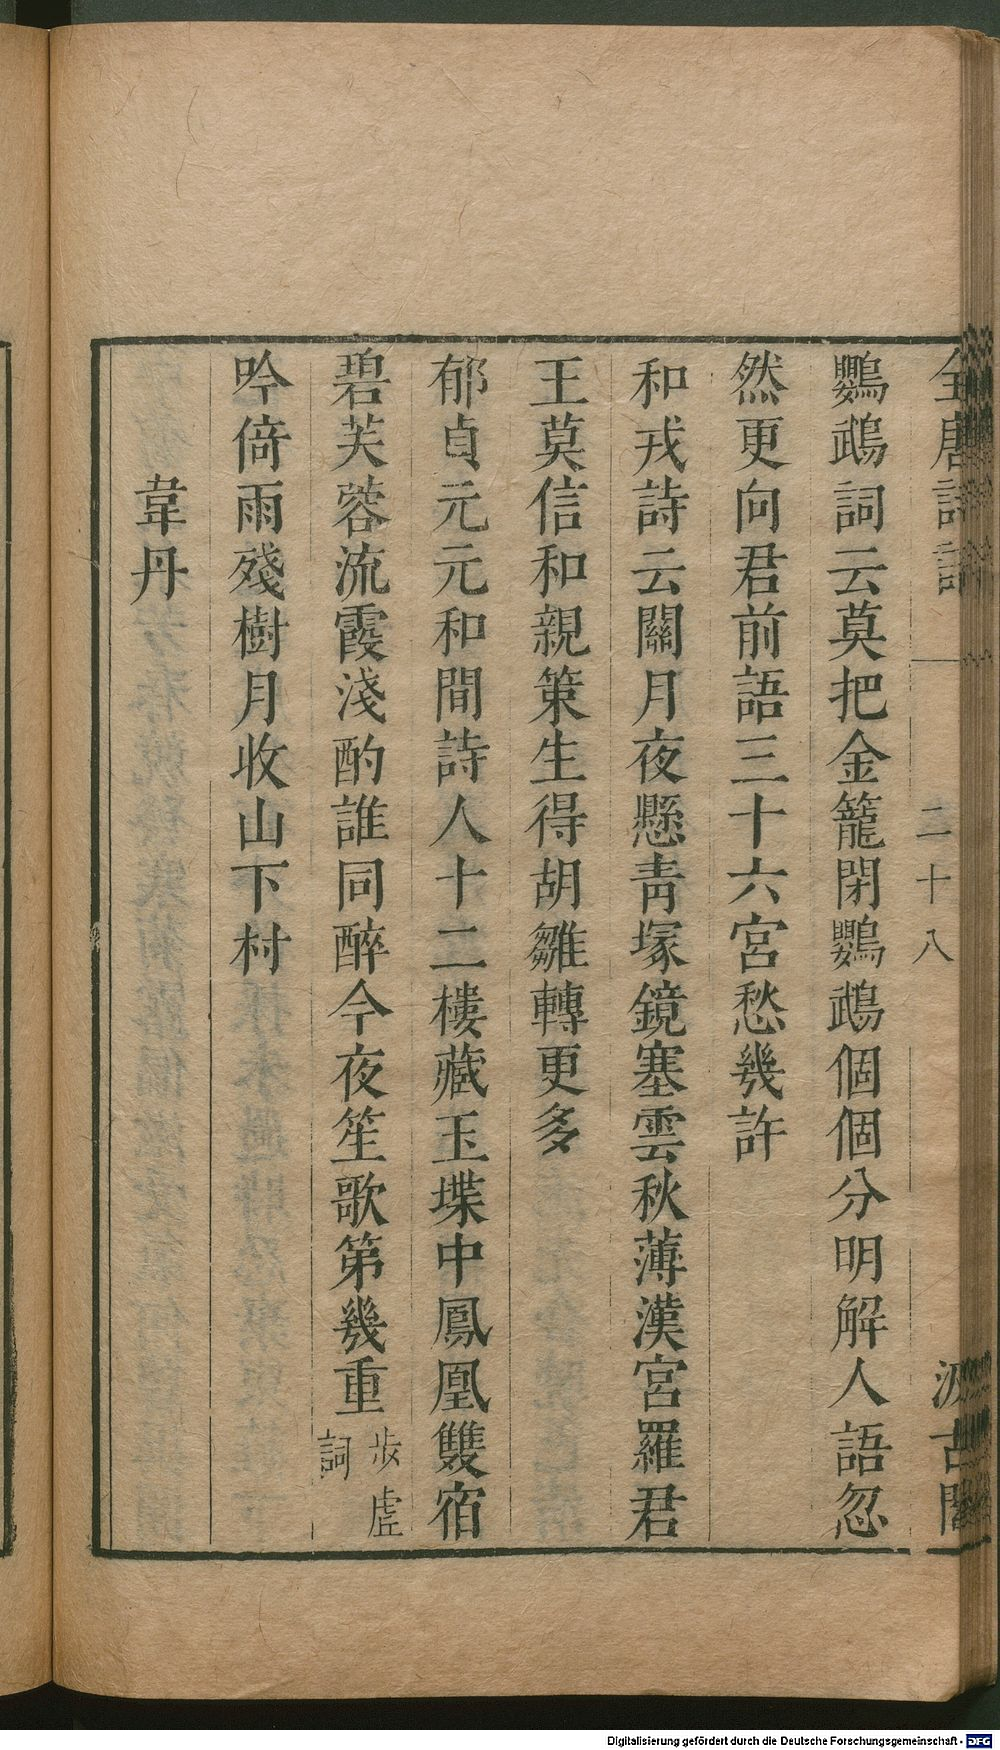 全唐詩話
二十八
汲古閣
鸚鵡詞云莫把金籠閉鸚鵡個個分明解人語忽
然更向君前語三十六宮愁幾許
和戎詩云關月夜懸青塚鏡塞雲秋薄漢宮羅君
王莫信和親策生得胡雛轉更多
郁貞元元和間詩人十二樓藏玉堞中鳳凰雙宿
碧芙蓉流霞淺酌誰同醉今夜笙歌第幾重步虛詞
吟倚雨殘樹月收山下村
韋丹
Digitalisierung gefördert durch die Deutsche Forschungsgemeinschaft - DFG